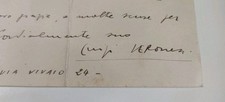 prego, a molte scuse per
Cordialmente suo
Luigi Veronesi
VIA VIVAIO 24 -